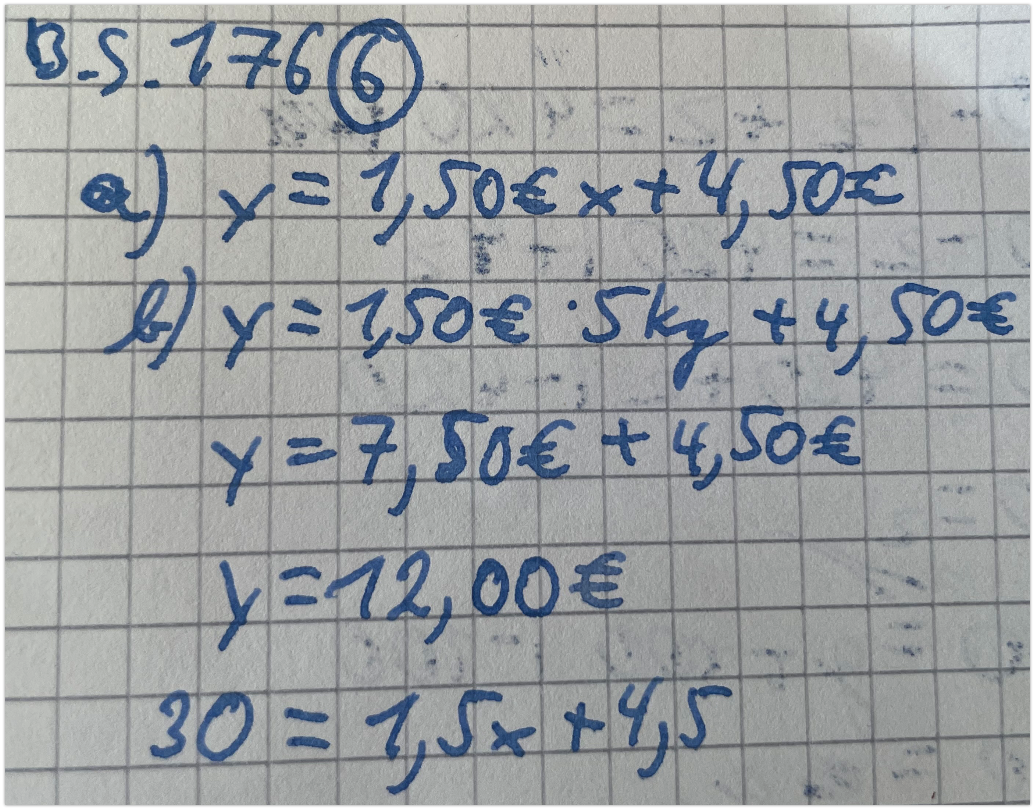 B.S. 176 6
a) y = 1,50€ x + 4,50€
b) y = 1,50€ · 5kg + 4,50€
y = 7,50€ + 4,50€
y = 12,00€
30 = 1,5x + 4,5